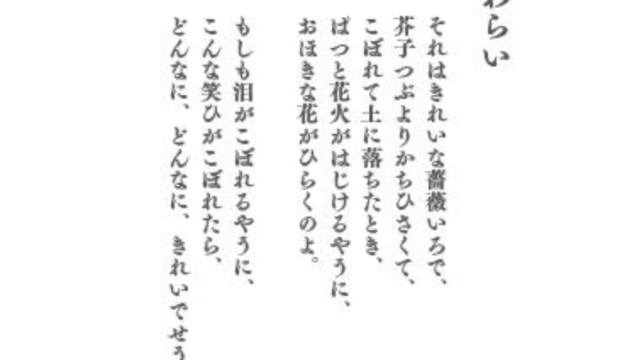 わらい
それはきれいな薔薇いろで、
芥子つぶよりかちひさくて、
こぼれて土に落ちたとき、
ぱつと花火がはじけるやうに、
おほきな花がひらくのよ。
もしも泪がこぼれるやうに、
こんな笑ひがこぼれたら、
どんなに、どんなに、きれいでせう